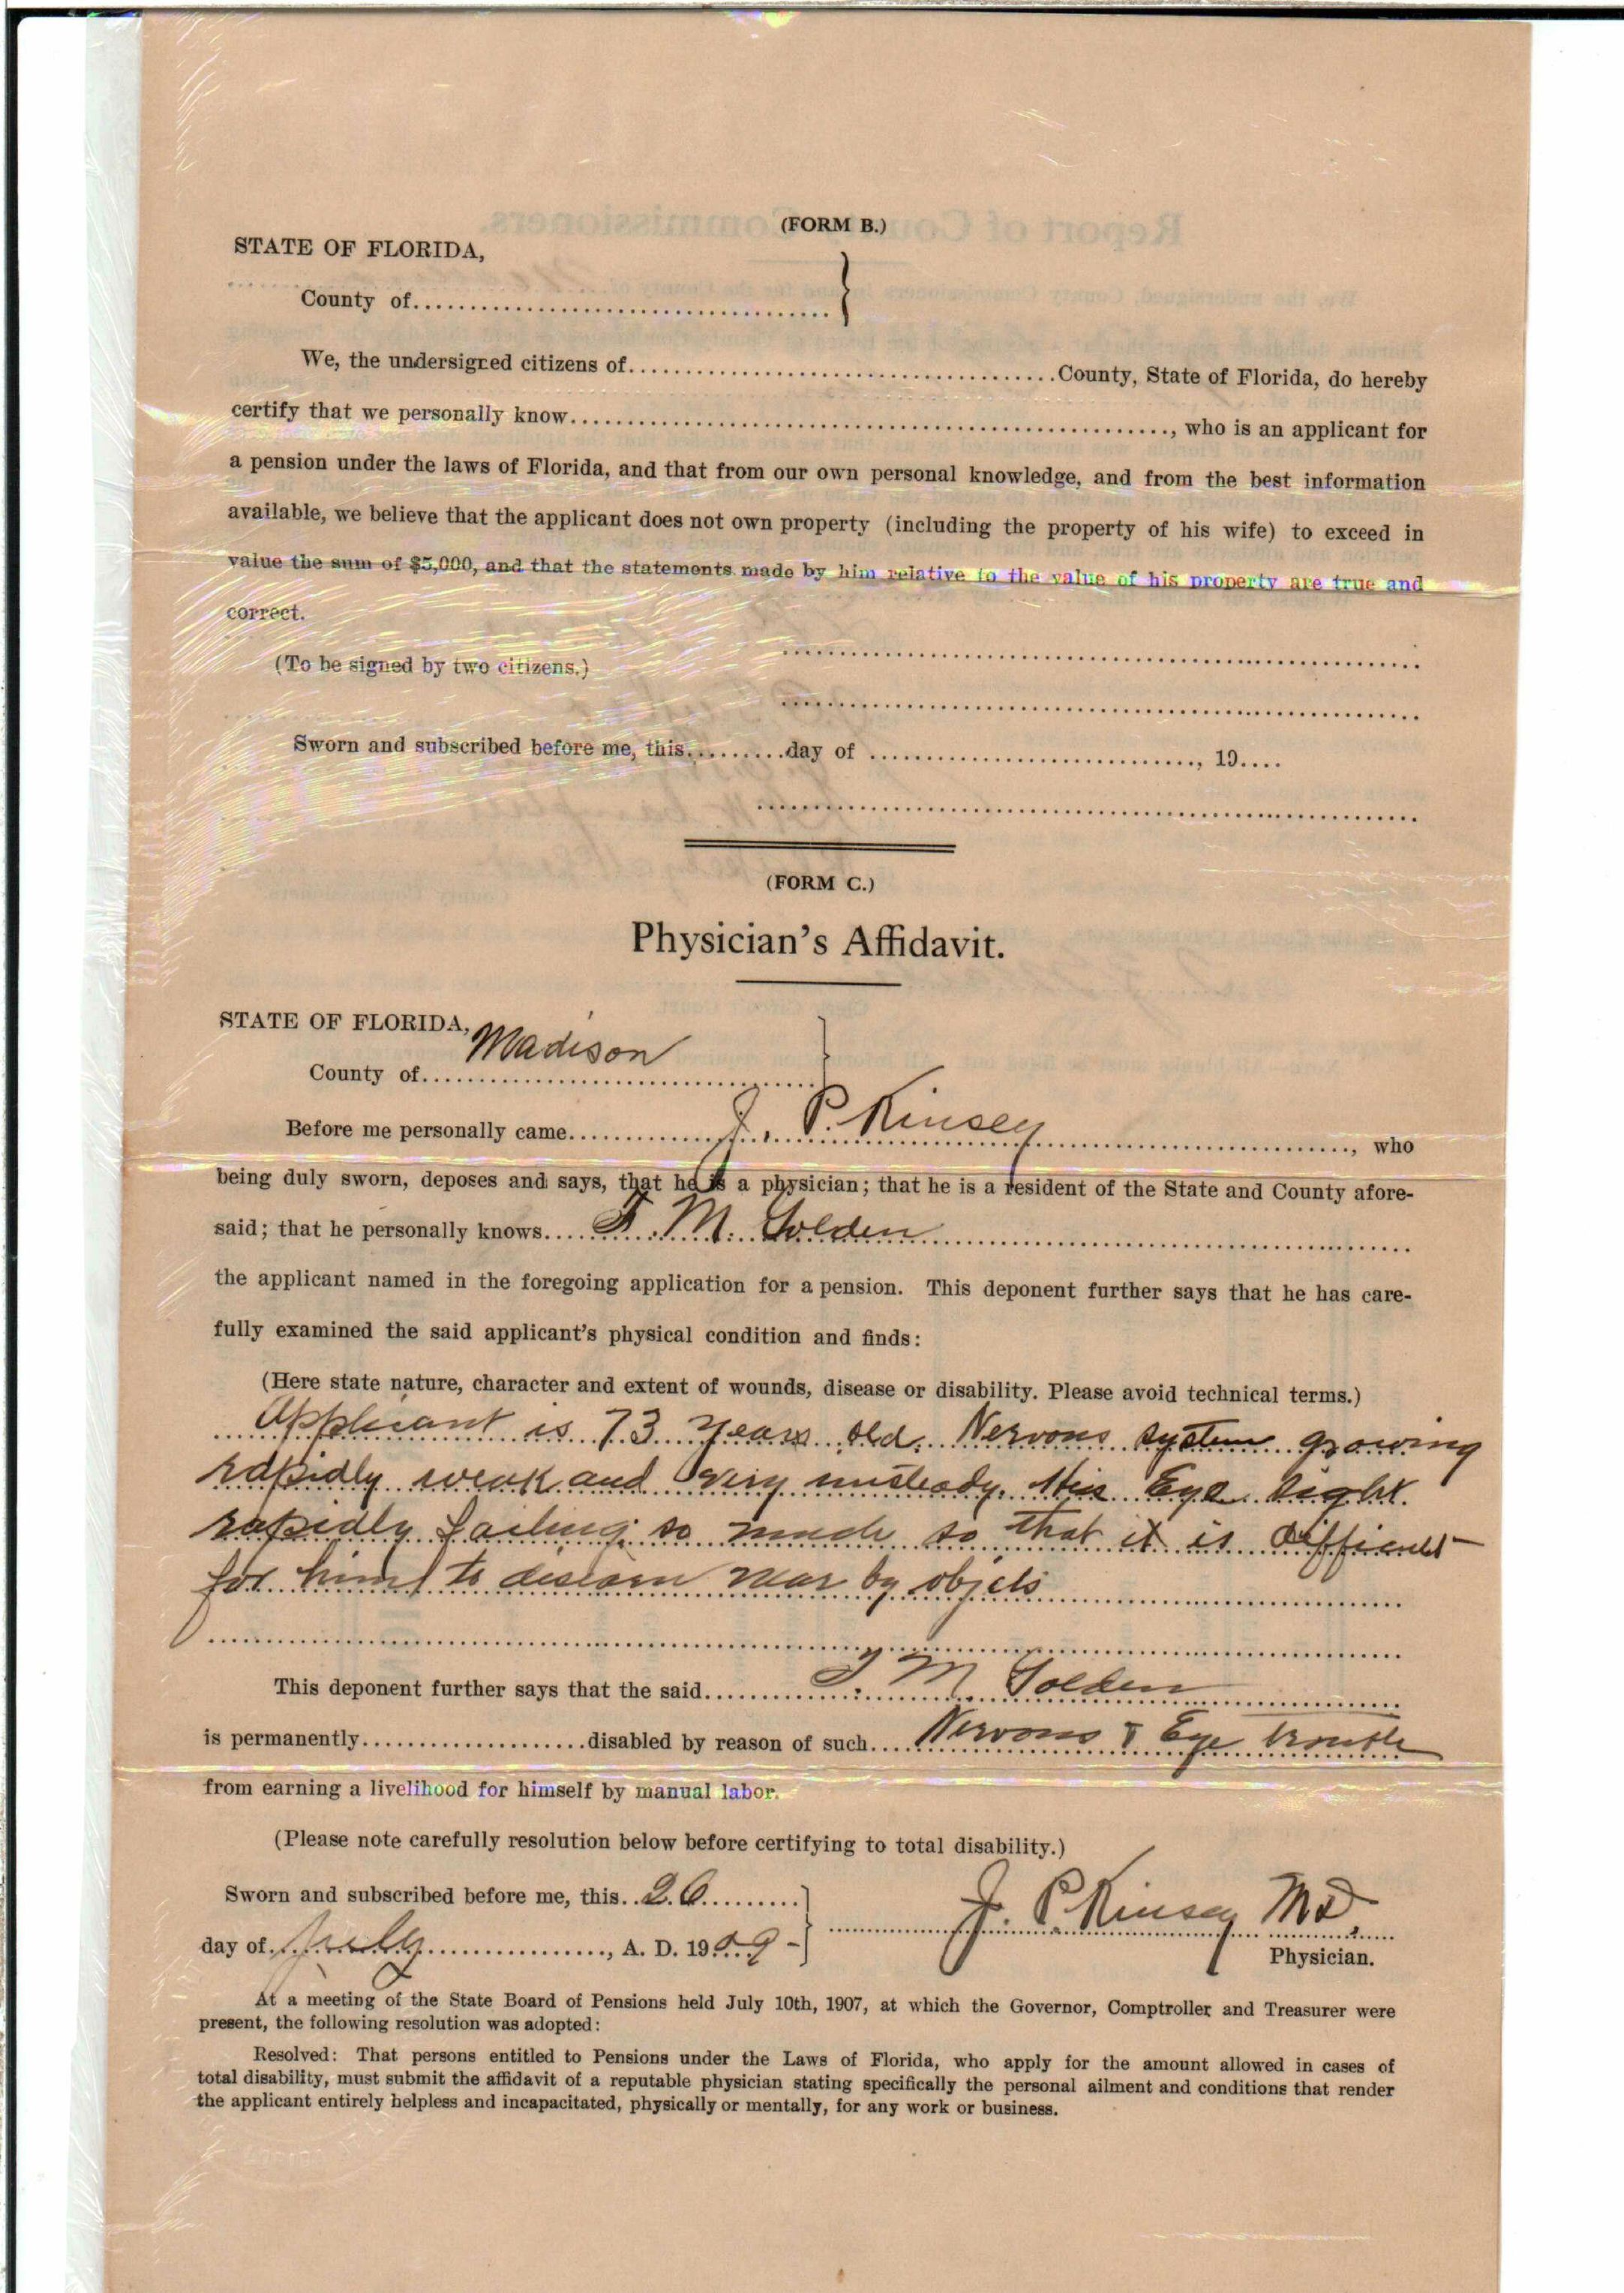 (FORM B.)
STATE OF FLORIDA,
County of........................................
We, the undersigned citizens of........................................County, State of Florida, do hereby
certify that we personally know........................................, who is an applicant for
a pension under the laws of Florida, and that from our own personal knowledge, and from the best information
available, we believe that the applicant does not own property (including the property of his wife) to exceed in
value the sum of $5,000, and that the statements made by him relative to the value of his property are true and
correct.
(To be signed by two citizens.)
Sworn and subscribed before me, this.........day of ................................, 19....
(FORM C.)
Physician's Affidavit.
STATE OF FLORIDA,
County of Madison
Before me personally came J. P. Kinsey, who
being duly sworn, deposes and says, that he is a physician; that he is a resident of the State and County afore-
said; that he personally knows F. M. Golden
the applicant named in the foregoing application for a pension. This deponent further says that he has care-
fully examined the said applicant's physical condition and finds:
(Here state nature, character and extent of wounds, disease or disability. Please avoid technical terms.)
Applicant is 73 years old. Nervous system growing
rapidly weak and very unsteady. His Eye sight
rapidly failing so much so that it is difficult
for him to discern near by objects
This deponent further says that the said M Golden
is permanently....................disabled by reason of such Nervous & Eye trouble
from earning a livelihood for himself by manual labor.
(Please note carefully resolution below before certifying to total disability.)
Sworn and subscribed before me, this 26
day of July, A. D. 1909 - J. P. Kinsey MD.
Physician.
At a meeting of the State Board of Pensions held July 10th, 1907, at which the Governor, Comptroller and Treasurer were
present, the following resolution was adopted:
Resolved: That persons entitled to Pensions under the Laws of Florida, who apply for the amount allowed in cases of
total disability, must submit the affidavit of a reputable physician stating specifically the personal ailment and conditions that render
the applicant entirely helpless and incapacitated, physically or mentally, for any work or business.